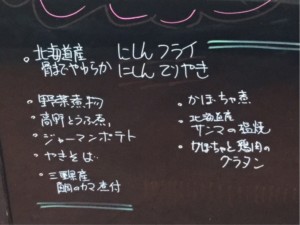 。北海道産 にしんフライ
骨までやわらか にしんてりやき
。野菜煮物
。高野とうふ煮
。ジャーマンポテト
。やきそば
。三重県産
鯛のカマ煮付
。かぼちゃ煮
。北海道産
サンマの塩焼
。かぼちゃと鶏肉の
グラタン